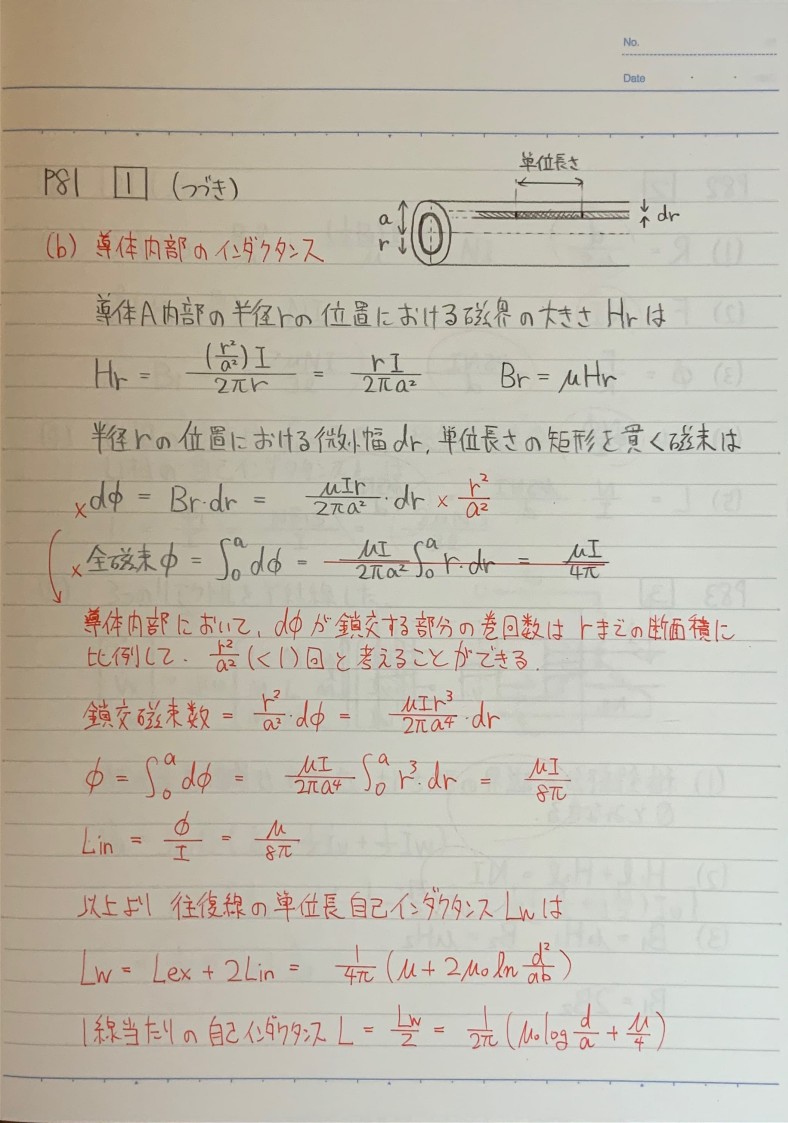 No.
Date
P81 1 (つづき)
単位長さ
a
r
dr
(b) 導体内部のインダクタンス
導体A内部の半径rの位置における磁界の大きさ Hrは
Hr = (r²/a²)I / 2πr = rI / 2πa² Br = μHr
半径rの位置における微小幅dr, 単位長さの矩形を貫く磁束は
×dφ = Br·dr = μIr / 2πa² · dr × r²/a²
×全磁束φ = ∫₀ᵃ dφ = μI / 2πa² ∫₀ᵃ r·dr = μI / 4π
導体内部において、dφが鎖交する部分の巻回数はrまでの断面積に
比例して、r²/a² (<1)回と考えることができる.
鎖交磁束数 = r²/a² · dφ = μIr³ / 2πa⁴ · dr
φ = ∫₀ᵃ dφ = μI / 2πa⁴ ∫₀ᵃ r³·dr = μI / 8π
Lin = φ / I = μ / 8π
以上より 往復線の単位長自己インダクタンス Lwは
Lw = Lex + 2Lin = 1/4π (μ + 2μ₀ ln d²/ab)
1線当たりの自己インダクタンス L = Lw/2 = 1/2π (μ₀ log d/a + μ/4)